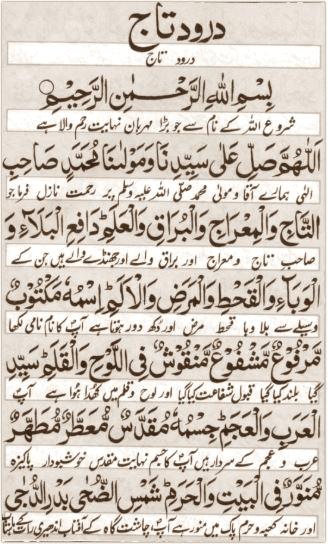 درود تاج
درود تاج
بِسْمِ اللهِ الرَّحْمٰنِ الرَّحِيْمِ
شروع اللہ کے نام سے جو بڑا مہربان نہایت رحم والا ہے
اَللّٰهُمَّ صَلِّ عَلٰى سَيِّدِنَا وَمَوْلٰنَا مُحَمَّدٍ صَاحِبِ
الٰہی ہمارے آقا و مولٰی محمد صلی اللہ علیہ وسلم پر رحمت نازل فرما جو
التَّاجِ وَالْمِعْرَاجِ وَالْبُرَاقِ وَالْعَلَمِ دَافِعِ الْبَلَاءِ وَ
صاحب تاج و معراج اور براق والے اور جھنڈے والے ہیں جن کے
الْوَبَاءِ وَالْقَحْطِ وَالْمَرَضِ وَالْاَلَمِ اِسْمُهٗ مَكْتُوْبٌ
وسیلے سے بلا وبا قحط مرض اور دکھ دور ہوتا ہے آپ کا نام نامی لکھا
مَّرْفُوْعٌ مَّشْفُوْعٌ مَّنْقُوْشٌ فِى اللَّوْحِ وَالْقَلَمِ سَيِّدِ
گیا بلند کیا گیا قبول شفاعت کیا گیا اور لوح و قلم میں کھدا ہوا ہے آپ
الْعَرَبِ وَالْعَجَمِ جِسْمُهٗ مُقَدَّسٌ مُعَطَّرٌ مُطَهَّرٌ
عرب و عجم کے سردار ہیں آپ کا جسم نہایت مقدس خوشبودار پاکیزہ
مُنَوَّرٌ فِى الْبَيْتِ وَالْحَرَمِ شَمْسِ الضُّحٰى بَدْرِ الدُّجٰى
اور خانہ کعبہ و حرم پاک میں منور ہے آپ چاشت گاہ کے آفتاب اندھیری رات کے